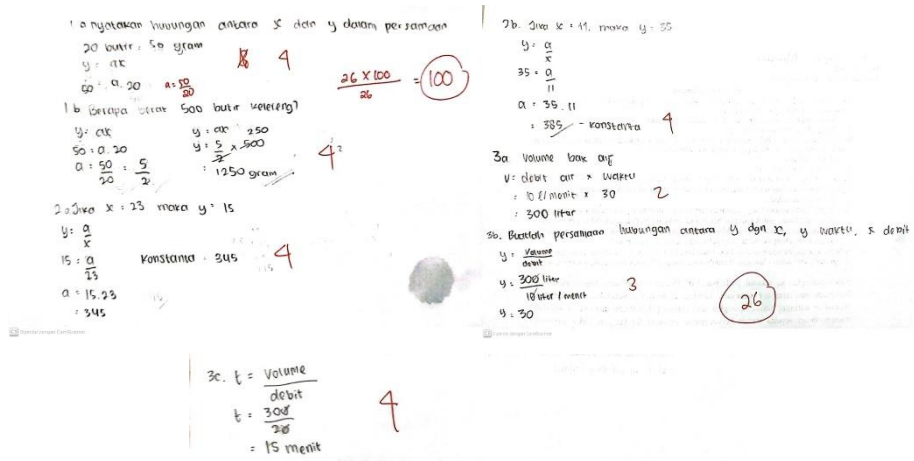 1 a nyatakan hubungan antara x dan y dalam persamaan
20 butir, 50 gram
y = ax
50 = a.20 a = 50/20
4
26 x 100 / 26 = 100
1 b Berapa berat 500 butir kelereng?
y = ax
50 = a.20
a = 50/20 = 5/2
y = ax
y = 5/2 x 500
= 1250 gram
4
2a Jika x = 23 maka y = 15
y = a/x
15 = a/23
Konstanta = 345
a = 15.23
= 345
4
2b. Jika x = 11, maka y = 35
y = a/x
35 = a/11
a = 35.11
= 385 - konstanta
4
3a Volume bak air
V = debit air x waktu
= 10 l/menit x 30
= 300 liter
2
3b. Buatlah persamaan hubungan antara y dgn x, y waktu, x debit
y = Volume/debit
y = 300 liter / 10 liter/menit
y = 30
3
26
3c. t = Volume/debit
t = 300/20
= 15 menit
4